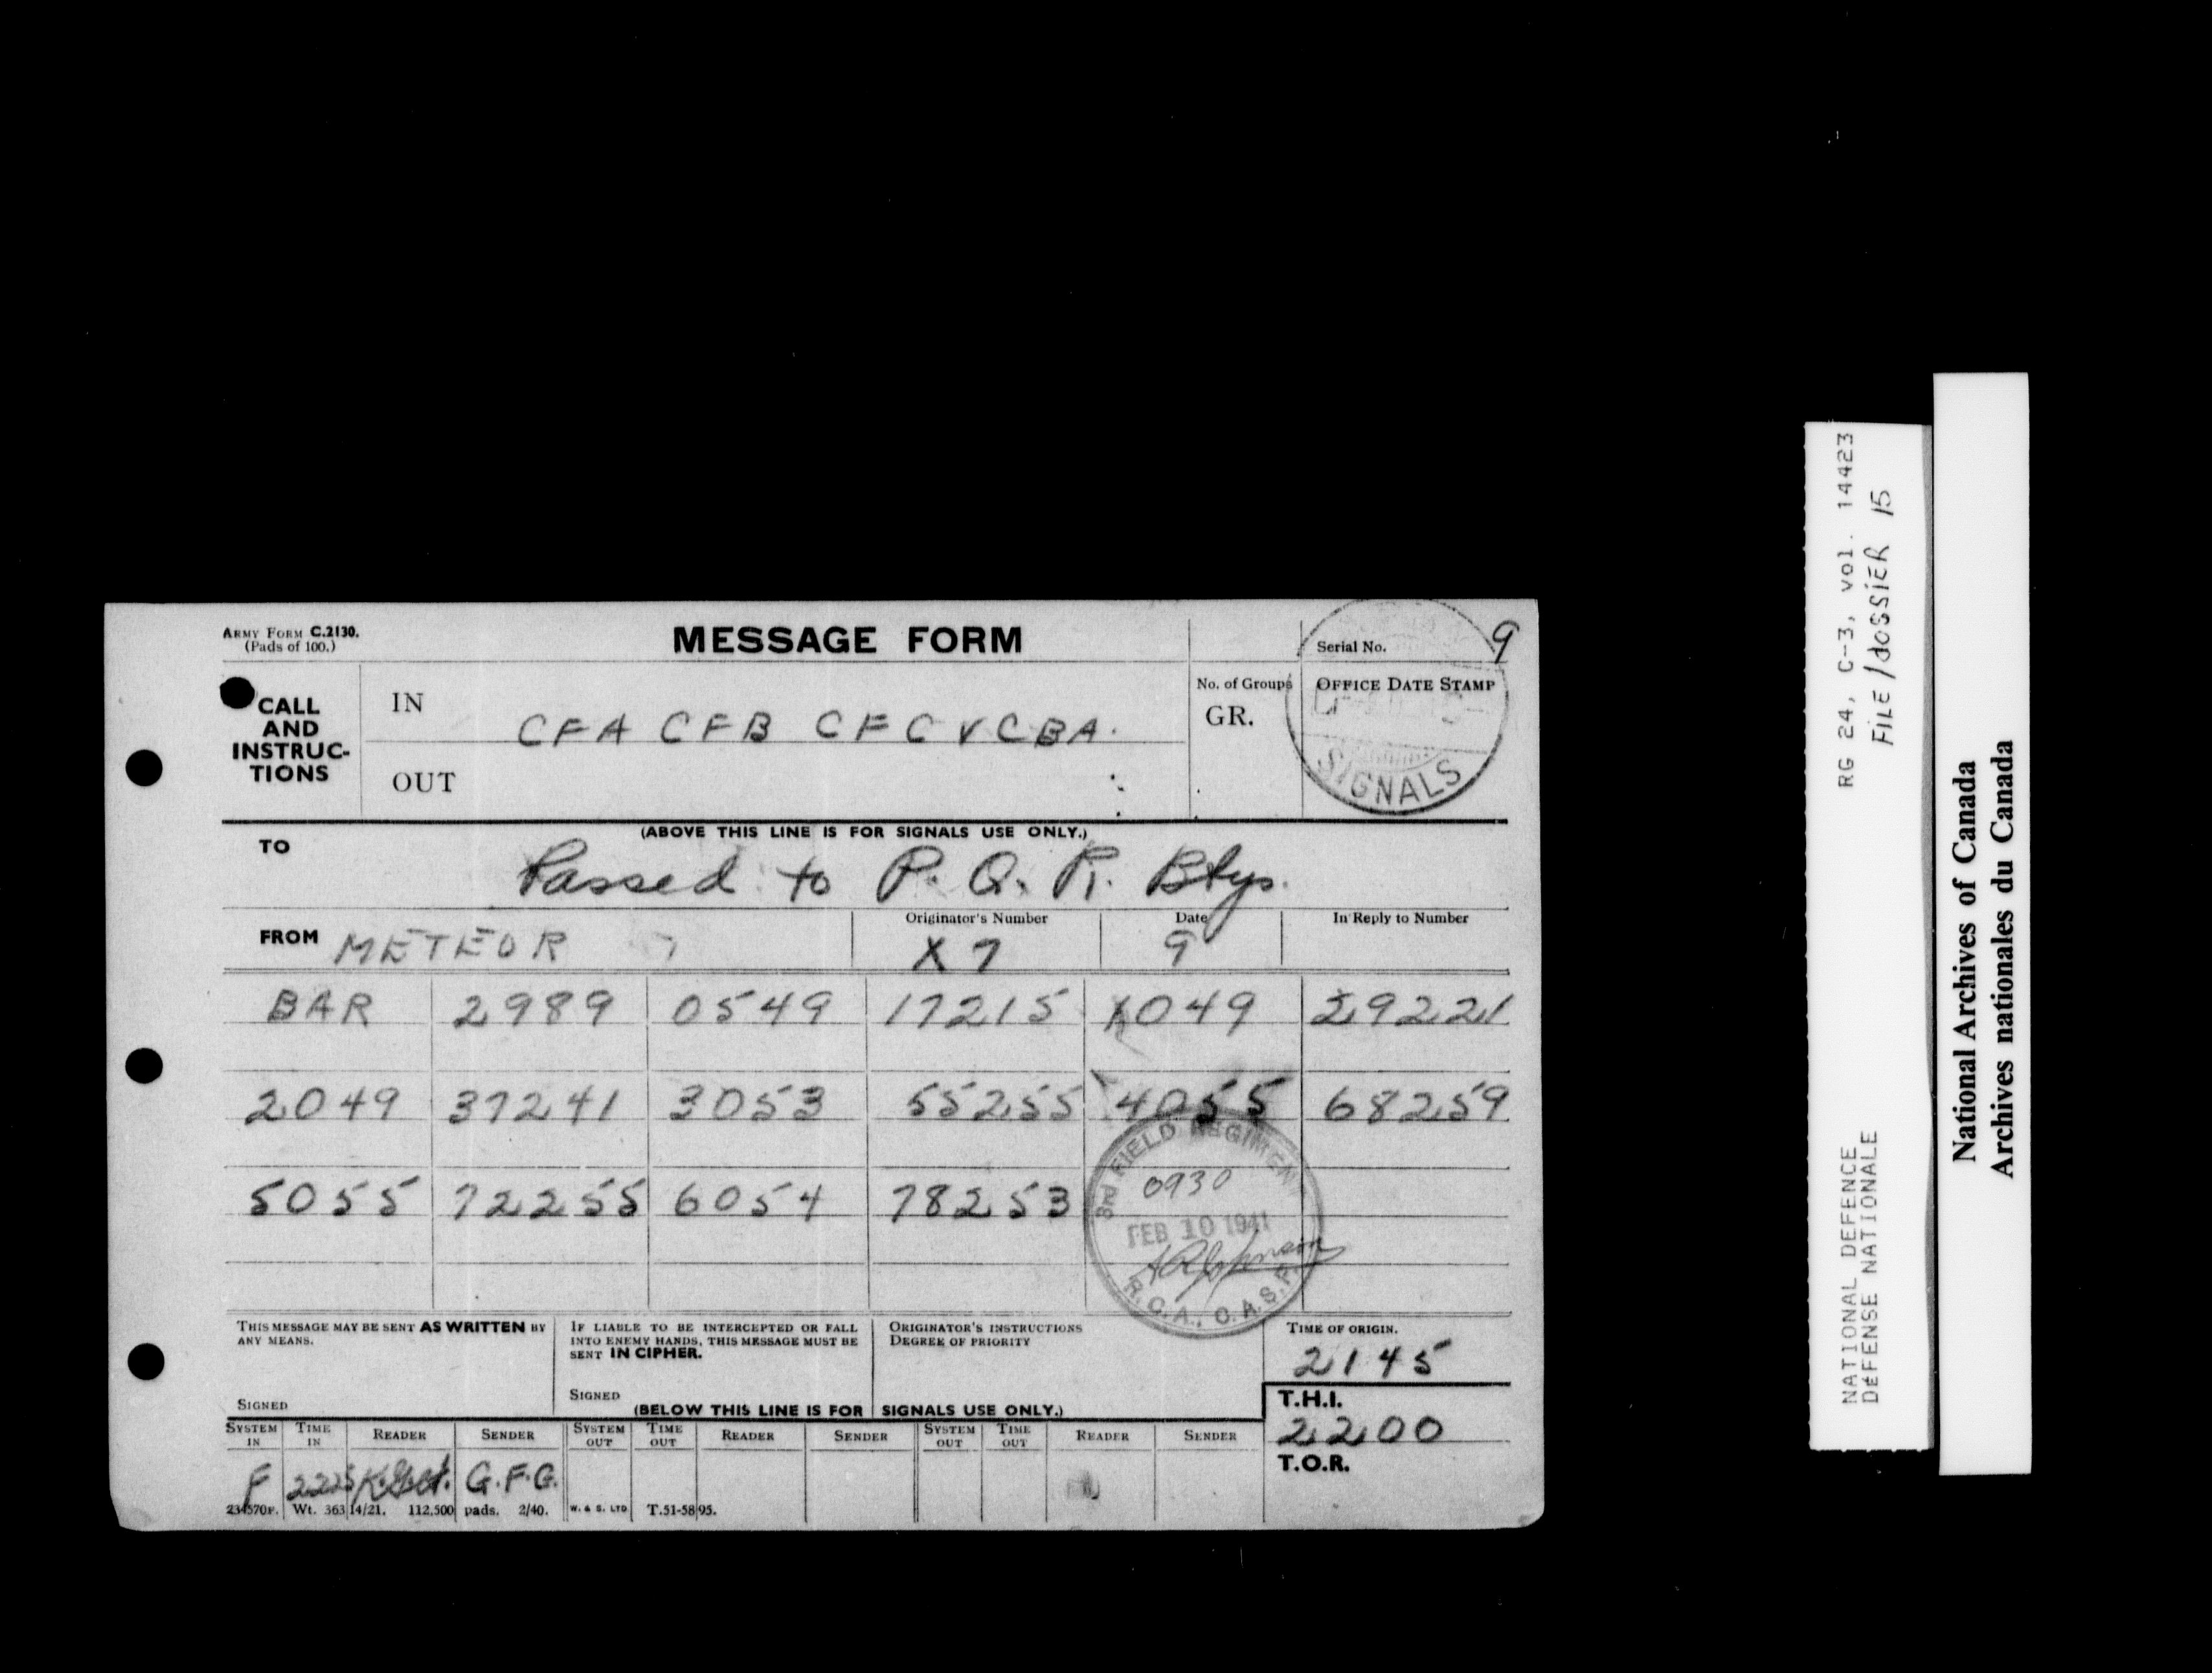 ARMY FORM C.2130.
(Pads of 100.)
MESSAGE FORM
Serial No. 9
CALL AND INSTRUC-TIONS
IN
CFA CFB CFC V CBA.
OUT
No. of Groups
GR.
OFFICE DATE STAMP
SIGNALS
(ABOVE THIS LINE IS FOR SIGNALS USE ONLY.)
TO
Passed to P. Q. R. Btys.
FROM METEOR
Originator's Number
X 7
Date
9
In Reply to Number
BAR 2989 0549 17215 1049 29221
2049 37241 3053 55255 4055 68259
5055 72255 6054 78253
3rd FIELD REGIMENT
0930
FEB 10 1941
R.C.A., C.A.S.F.
THIS MESSAGE MAY BE SENT AS WRITTEN BY
ANY MEANS.
SIGNED
IF LIABLE TO BE INTERCEPTED OR FALL
INTO ENEMY HANDS, THIS MESSAGE MUST BE
SENT IN CIPHER.
SIGNED
ORIGINATOR'S INSTRUCTIONS
DEGREE OF PRIORITY
TIME OF ORIGIN.
2145
(BELOW THIS LINE IS FOR SIGNALS USE ONLY.)
T.H.I.
2200
T.O.R.
SYSTEM IN TIME IN READER SENDER SYSTEM OUT TIME OUT READER SENDER SYSTEM OUT TIME OUT READER SENDER
F 2225 G.F.G.
234570F. Wt. 36314/21. 112,500 pads. 2/40. W. & S. LTD T.51-5895.
RG 24, C-3, vol. 14423
FILE/dossier 15
NATIONAL DEFENCE
DÉFENSE NATIONALE
National Archives of Canada
Archives nationales du Canada